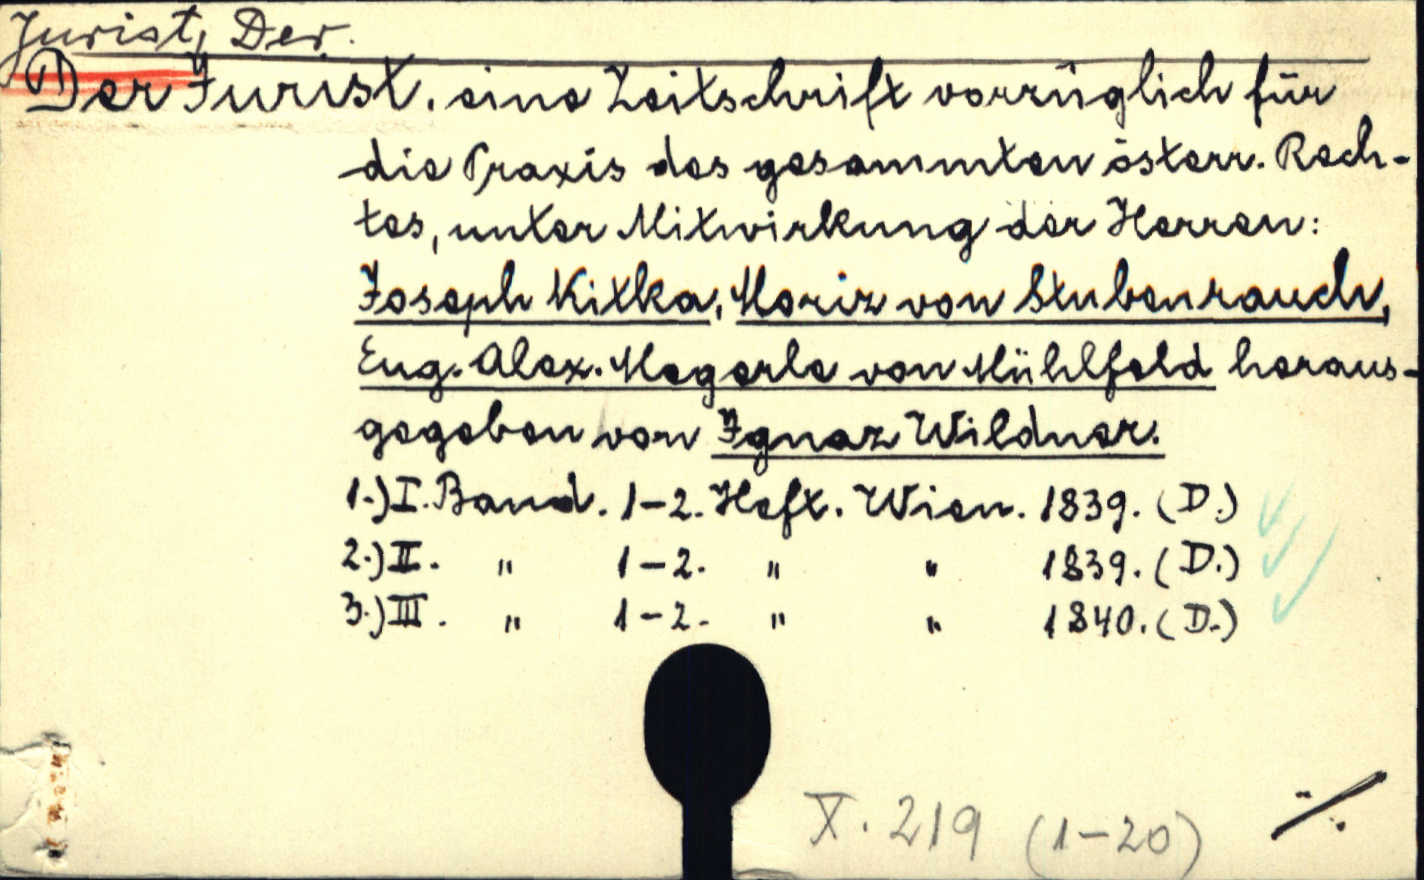 Jurist, Der.
Der Jurist. eine Zeitschrift vorzüglich für
die Praxis des gesammten österr. Rech-
tes, unter Mitwirkung der Herren:
Joseph Kitka, Moriz von Stubenrauch,
Eug. Alex. Megerle von Mühlfeld heraus-
gegeben von Ignaz Wildner.
1.) I. Band. 1-2. Heft. Wien. 1839. (D.)
2.) II. " 1-2. " " 1839. (D.)
3.) III. " 1-2. " " 1840. (D.)
X. 219 (1-20) ./.